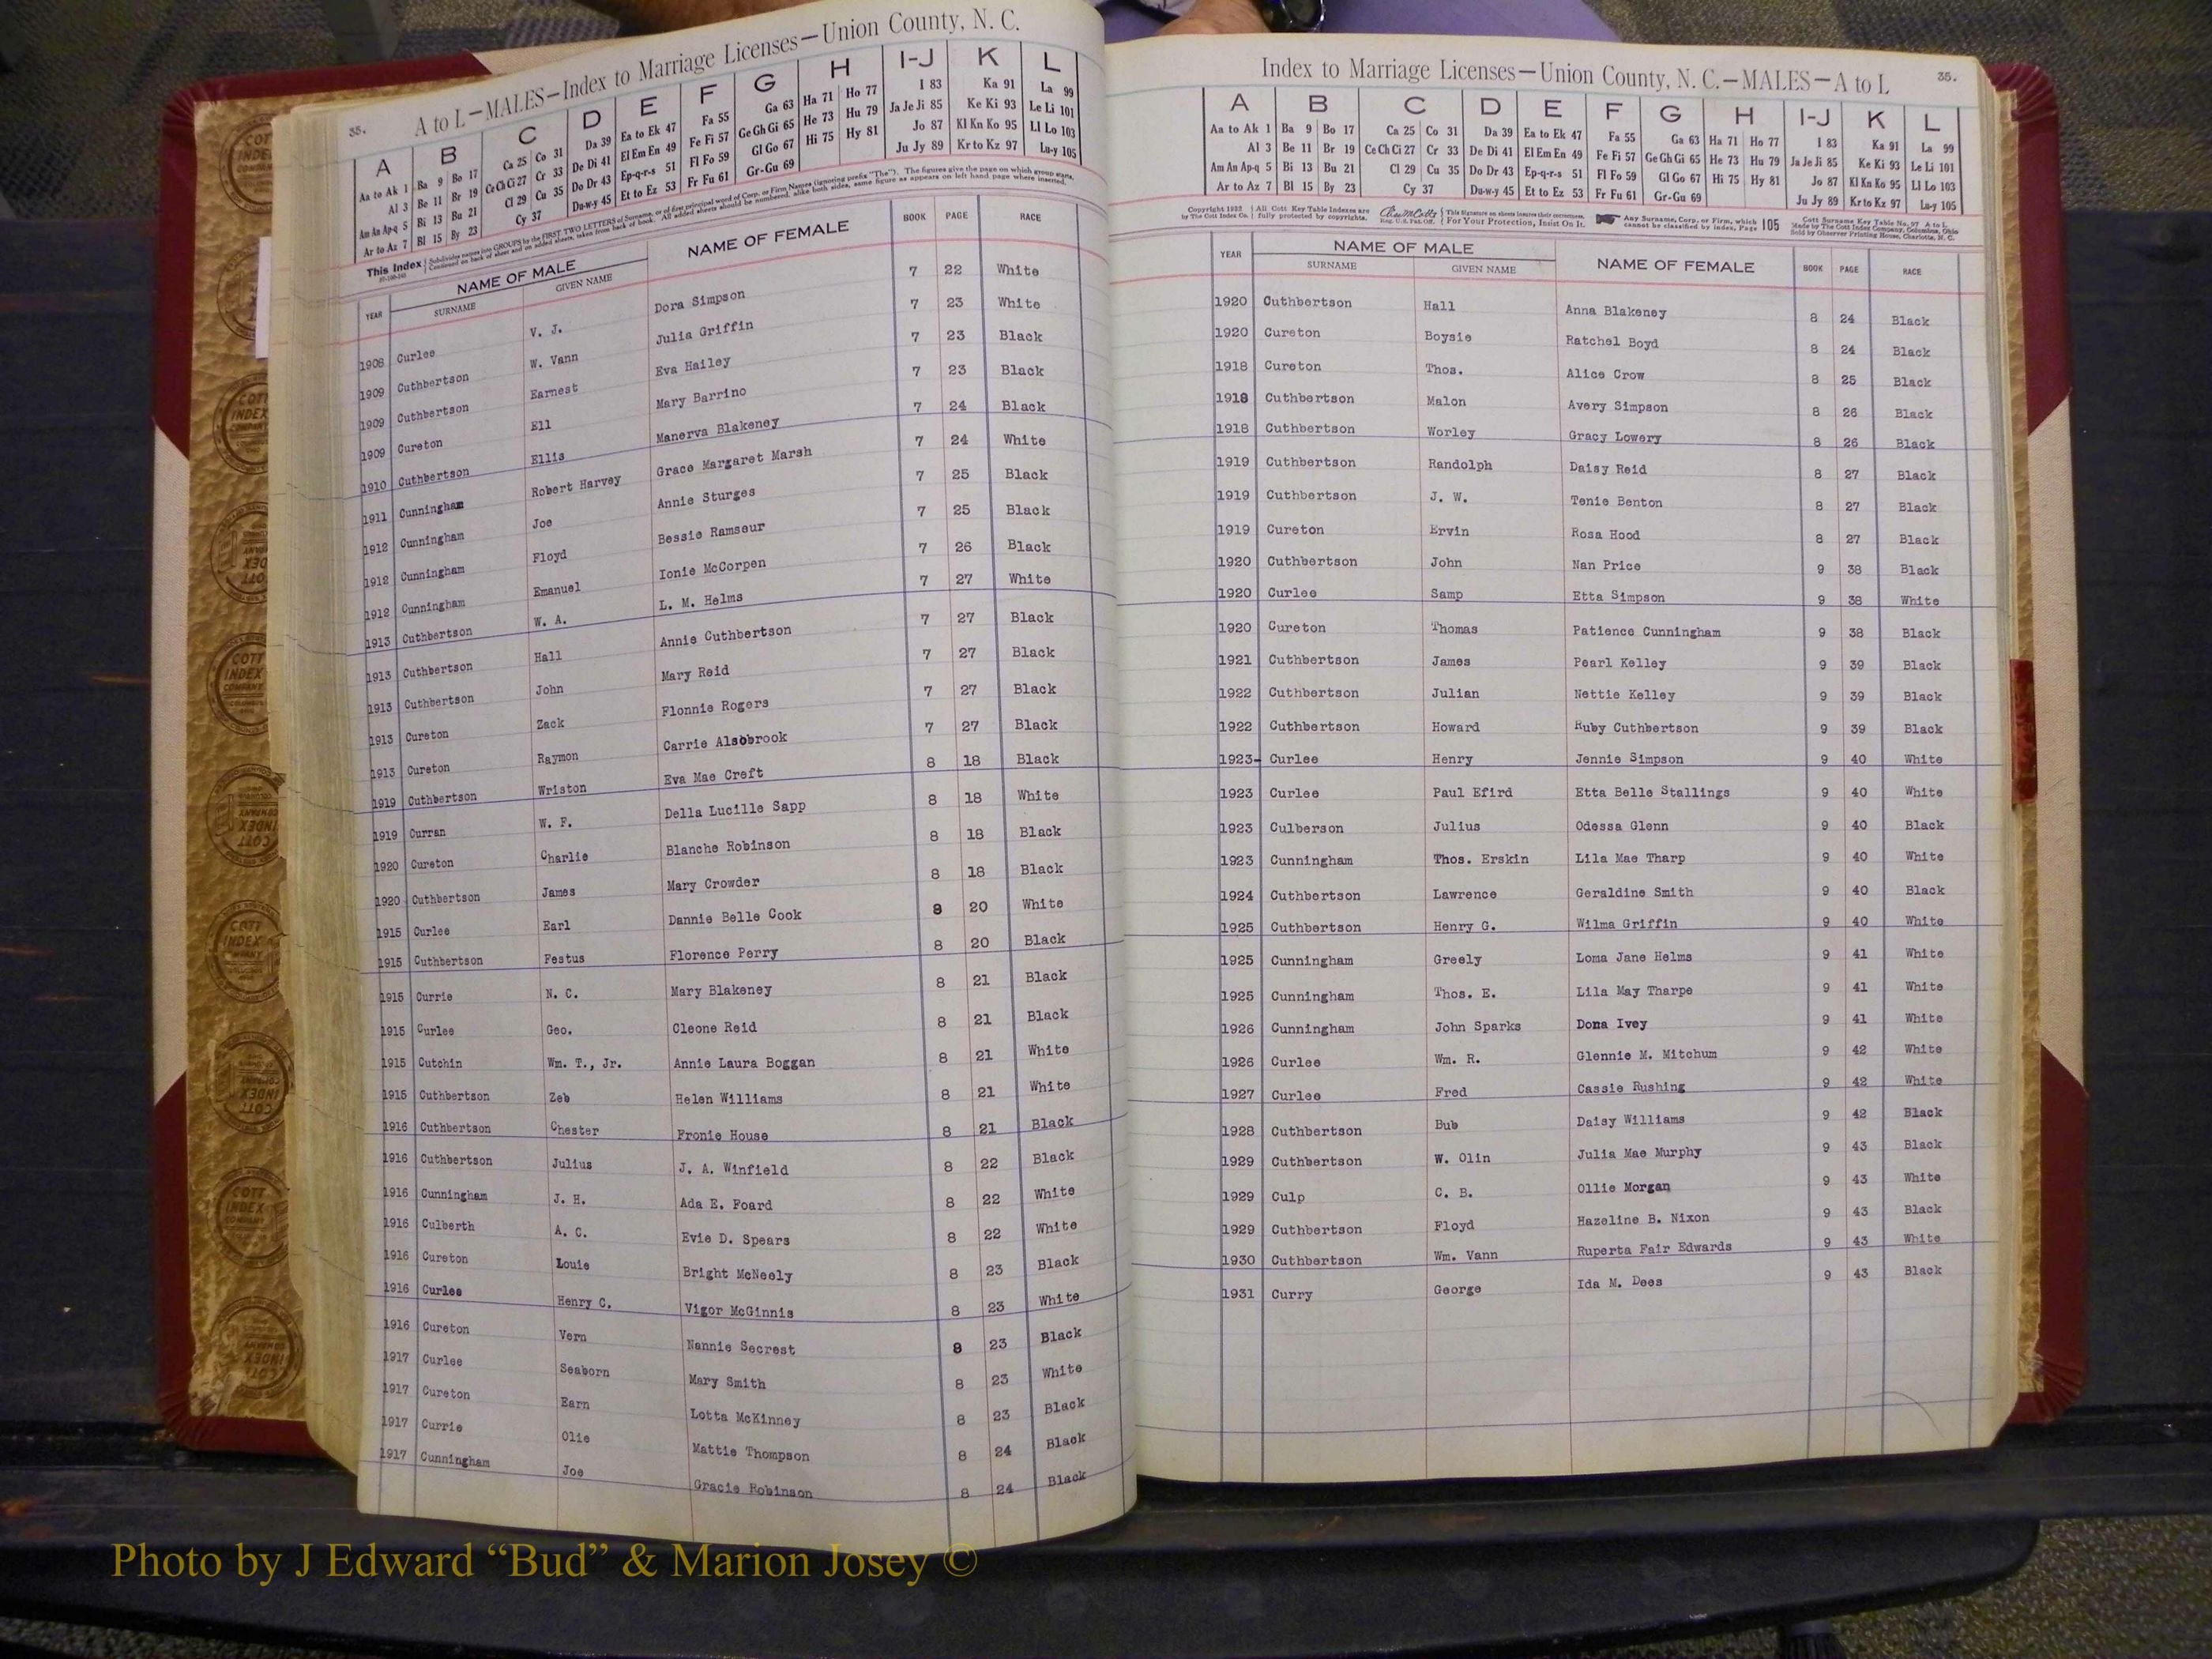 35.
A to L—MALES—Index to Marriage Licenses—Union County, N. C.
A B C D E F G H I-J K L
Aa to Ak 1 Ba 9 Bo 17 Ca 25 Co 31 Da 39 Ea to Ek 47 Fa 55 Ga 63 Ha 71 Ho 77 I 83 Ka 91 La 99
Al 3 Be 11 Br 19 Ce Ch Ci 27 Cr 33 De Di 41 El Em En 49 Fe Fi 57 Ge Gh Gi 65 He 73 Hu 79 Ja Je Ji 85 Ke Ki 93 Le Li 101
Am An Ap-q 5 Bi 13 Bu 21 Cl 29 Cu 35 Do Dr 43 Ep-q-r-s 51 Fl Fo 59 Gl Go 67 Hi 75 Hy 81 Jo 87 Kl Kn Ko 95 Ll Lo 103
Ar to Az 7 Bl 15 By 23 Cy 37 Du-w-y 45 Et to Ez 53 Fr Fu 61 Gr-Gu 69 Ju Jy 89 Kr to Kz 97 Lu-y 105
This Index Subdivides names into GROUPS by the FIRST TWO LETTERS of Surname, or of first principal word of Corp. or Firm Names (ignoring prefix "The"). The figures give the page on which group starts.
Continued on back of sheet and on added sheets, taken from back of book. All added sheets should be numbered, alike both sides, same figure as appears on left hand page where inserted.
YEAR NAME OF MALE NAME OF FEMALE BOOK PAGE RACE
SURNAME GIVEN NAME
1908 Curlee V. J. Dora Simpson 7 22 White
1909 Cuthbertson W. Vann Julia Griffin 7 23 White
1909 Cuthbertson Earnest Eva Hailey 7 23 Black
1909 Cureton Ell Mary Barrino 7 23 Black
1910 Cuthbertson Ellis Manerva Blakeney 7 24 Black
1911 Cunningham Robert Harvey Grace Margaret Marsh 7 24 White
1912 Cunningham Joe Annie Sturges 7 25 Black
1912 Cunningham Floyd Bessie Ramseur 7 25 Black
1912 Cunningham Emanuel Ionie McCorpen 7 26 Black
1913 Cuthbertson W. A. L. M. Helms 7 27 White
1913 Cuthbertson Hall Annie Cuthbertson 7 27 Black
1913 Cuthbertson John Mary Reid 7 27 Black
1913 Cureton Zack Flonnie Rogers 7 27 Black
1913 Cureton Raymon Carrie Alsobrook 7 27 Black
1919 Cuthbertson Wriston Eva Mae Creft 8 18 Black
1919 Curran W. F. Della Lucille Sapp 8 18 White
1920 Cureton Charlie Blanche Robinson 8 18 Black
1920 Cuthbertson James Mary Crowder 8 18 Black
1915 Curlee Earl Dannie Belle Cook 8 20 White
1915 Cuthbertson Festus Florence Perry 8 20 Black
1915 Currie N. C. Mary Blakeney 8 21 Black
1915 Curlee Geo. Cleone Reid 8 21 Black
1915 Cutchin Wm. T., Jr. Annie Laura Boggan 8 21 White
1915 Cuthbertson Zeb Helen Williams 8 21 White
1916 Cuthbertson Chester Fronie House 8 21 Black
1916 Cuthbertson Julius J. A. Winfield 8 22 Black
1916 Cunningham J. H. Ada E. Foard 8 22 White
1916 Culberth A. C. Evie D. Spears 8 22 White
1916 Cureton Louie Bright McNeely 8 23 Black
1916 Curlee Henry C. Vigor McGinnis 8 23 White
1916 Cureton Vern Nannie Secrest 8 23 Black
1917 Curlee Seaborn Mary Smith 8 23 White
1917 Cureton Earn Lotta McKinney 8 23 Black
1917 Currie Olie Mattie Thompson 8 24 Black
1917 Cunningham Joe Gracie Robinson 8 24 Black
Index to Marriage Licenses—Union County, N. C.—MALES—A to L
35.
A B C D E F G H I-J K L
Aa to Ak 1 Ba 9 Bo 17 Ca 25 Co 31 Da 39 Ea to Ek 47 Fa 55 Ga 63 Ha 71 Ho 77 I 83 Ka 91 La 99
Al 3 Be 11 Br 19 Ce Ch Ci 27 Cr 33 De Di 41 El Em En 49 Fe Fi 57 Ge Gh Gi 65 He 73 Hu 79 Ja Je Ji 85 Ke Ki 93 Le Li 101
Am An Ap-q 5 Bi 13 Bu 21 Cl 29 Cu 35 Do Dr 43 Ep-q-r-s 51 Fl Fo 59 Gl Go 67 Hi 75 Hy 81 Jo 87 Kl Kn Ko 95 Ll Lo 103
Ar to Az 7 Bl 15 By 23 Cy 37 Du-w-y 45 Et to Ez 53 Fr Fu 61 Gr-Gu 69 Ju Jy 89 Kr to Kz 97 Lu-y 105
Copyright 1922 All Cott Key Table Indexes are This Signature on sheets insures their correctness. Any Surname, Corp. or Firm, which 105 Cott Surname Key Table No. 97 A to L
by The Cott Index Co. fully protected by copyrights. Reg. U. S. Pat. Off. For Your Protection, Insist On It. cannot be classified by index, Page Made by The Cott Index Company, Columbus, Ohio
Sold by Observer Printing House, Charlotte, N. C.
YEAR NAME OF MALE NAME OF FEMALE BOOK PAGE RACE
SURNAME GIVEN NAME
1920 Cuthbertson Hall Anna Blakeney 8 24 Black
1920 Cureton Boysie Ratchel Boyd 8 24 Black
1918 Cureton Thos. Alice Crow 8 25 Black
1918 Cuthbertson Malon Avery Simpson 8 26 Black
1918 Cuthbertson Worley Gracy Lowery 8 26 Black
1919 Cuthbertson Randolph Daisy Reid 8 27 Black
1919 Cuthbertson J. W. Tenie Benton 8 27 Black
1919 Cureton Ervin Rosa Hood 8 27 Black
1920 Cuthbertson John Nan Price 9 38 Black
1920 Curlee Samp Etta Simpson 9 38 White
1920 Cureton Thomas Patience Cunningham 9 38 Black
1921 Cuthbertson James Pearl Kelley 9 39 Black
1922 Cuthbertson Julian Nettie Kelley 9 39 Black
1922 Cuthbertson Howard Ruby Cuthbertson 9 39 Black
1923- Curlee Henry Jennie Simpson 9 40 White
1923 Curlee Paul Efird Etta Belle Stallings 9 40 White
1923 Culberson Julius Odessa Glenn 9 40 Black
1923 Cunningham Thos. Erskin Lila Mae Tharp 9 40 White
1924 Cuthbertson Lawrence Geraldine Smith 9 40 Black
1925 Cuthbertson Henry G. Wilma Griffin 9 40 White
1925 Cunningham Greely Loma Jane Helms 9 41 White
1925 Cunningham Thos. E. Lila May Tharpe 9 41 White
1926 Cunningham John Sparks Dona Ivey 9 41 White
1926 Curlee Wm. R. Glennie M. Mitchum 9 42 White
1927 Curlee Fred Cassie Rushing 9 42 White
1928 Cuthbertson Bub Daisy Williams 9 42 Black
1929 Cuthbertson W. Olin Julia Mae Murphy 9 43 Black
1929 Culp C. B. Ollie Morgan 9 43 White
1929 Cuthbertson Floyd Hazeline B. Nixon 9 43 Black
1930 Cuthbertson Wm. Vann Ruperta Fair Edwards 9 43 White
1931 Curry George Ida M. Dees 9 43 Black
Photo by J Edward “Bud” & Marion Josey ©